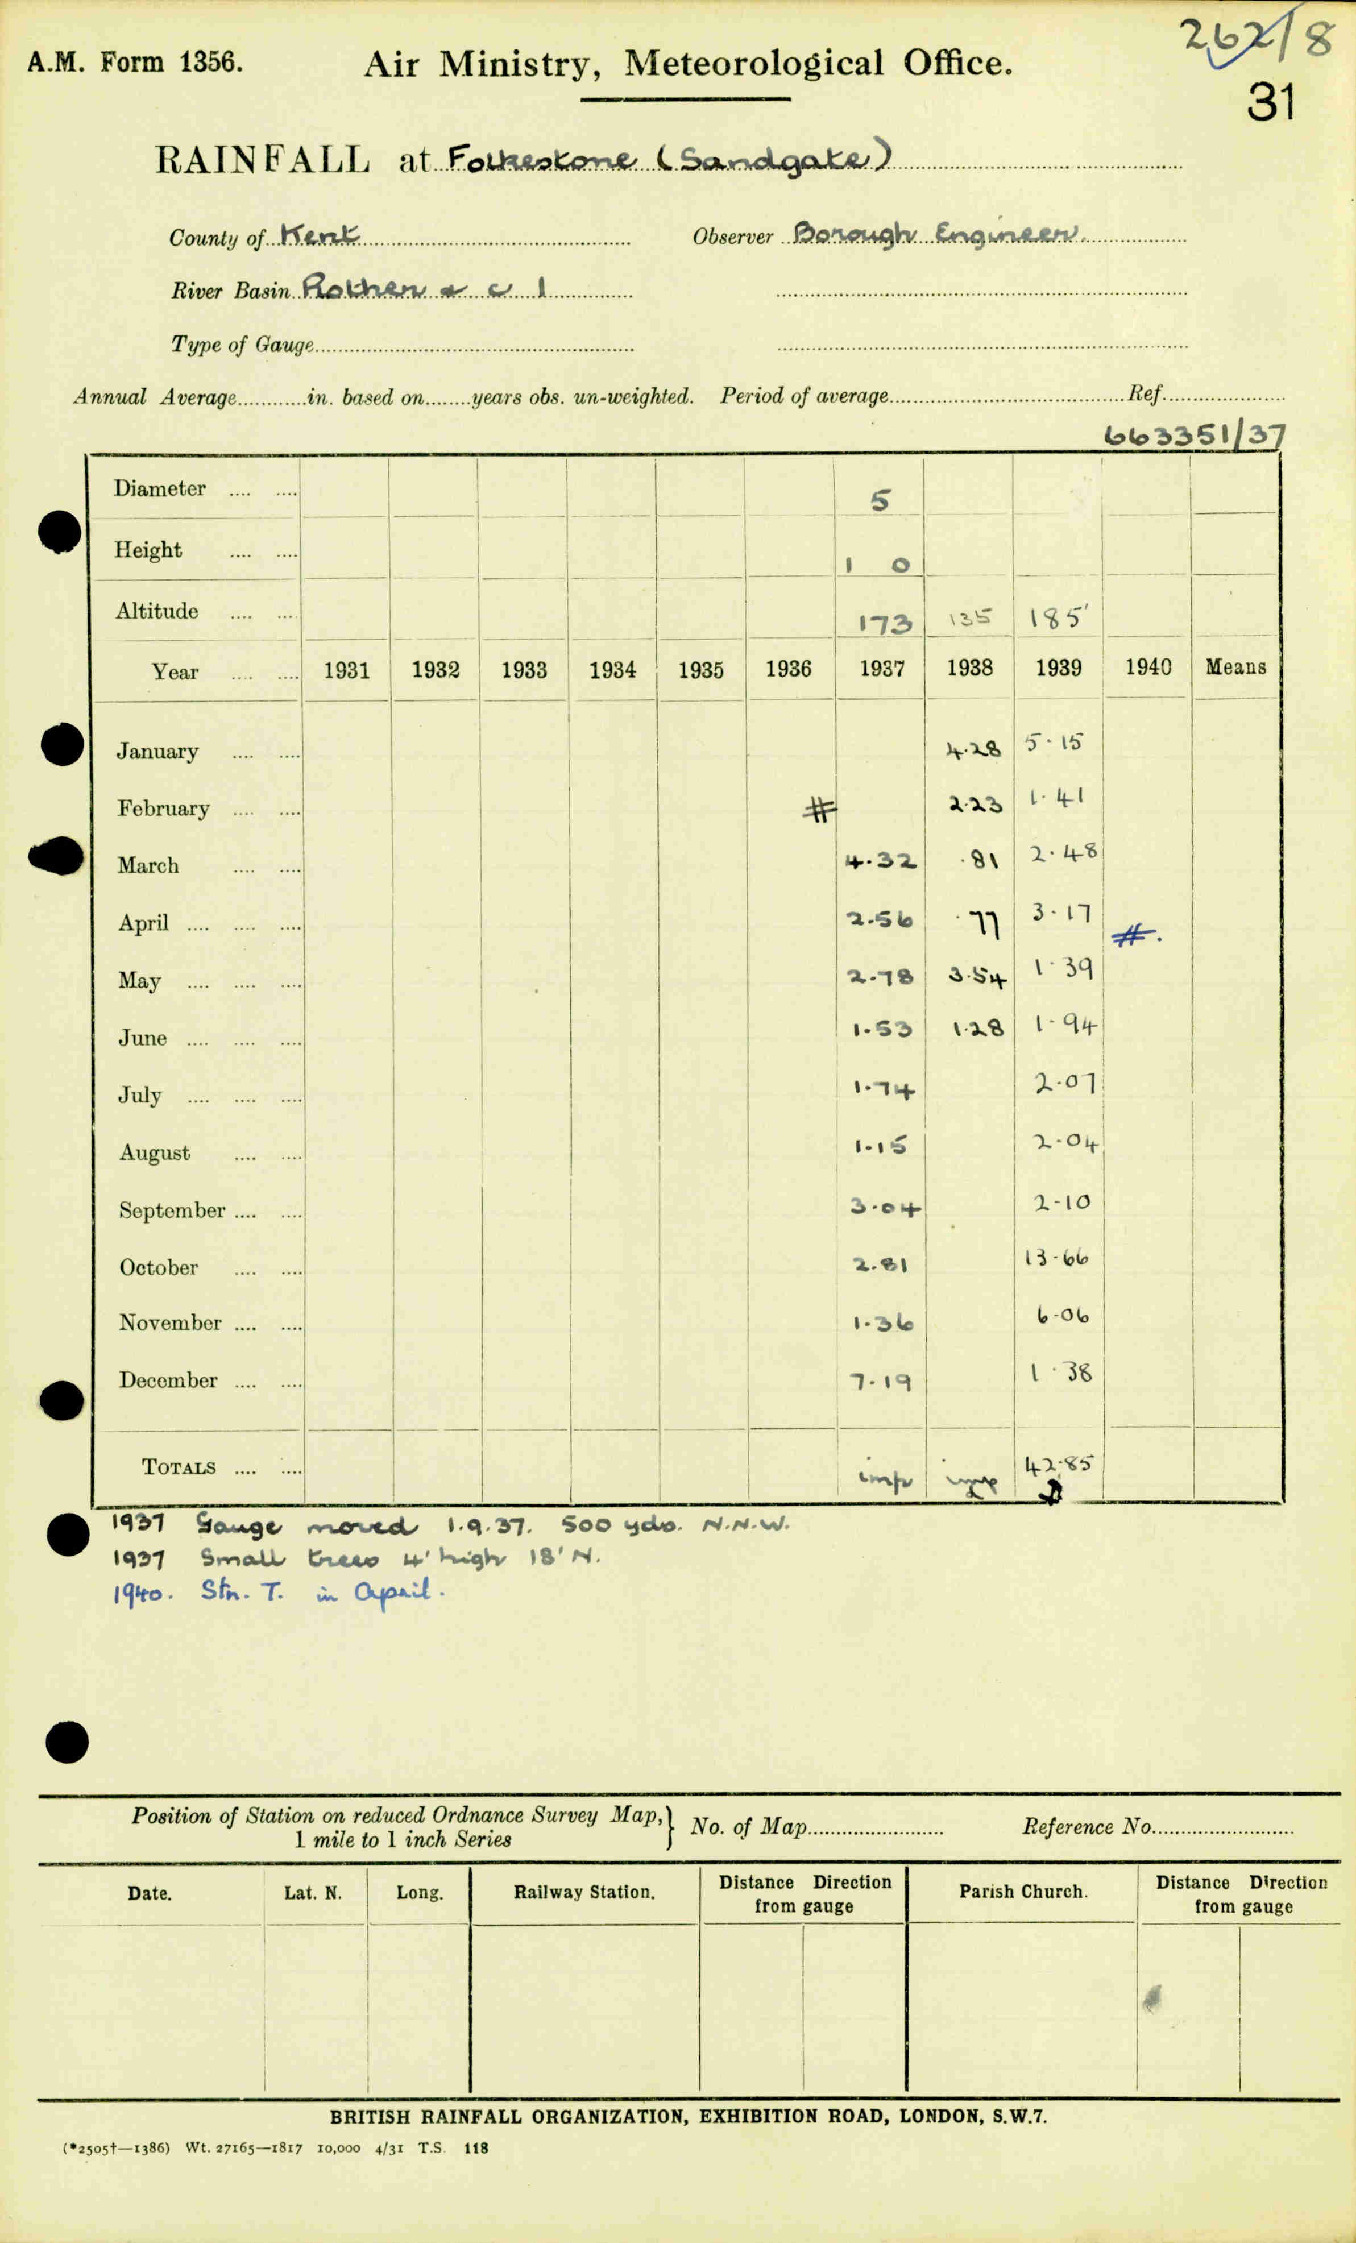 262/8
A.M. Form 1356. Air Ministry, Meteorological Office.
31
RAINFALL at Folkestone (Sandgate)
County of Kent Observer Borough Engineer.
River Basin Rother & c 1
Type of Gauge
Annual Average in. based on years obs. un-weighted. Period of average Ref.
663351/37
Diameter 5
Height 1 0
Altitude 173 135 185'
Year 1931 1932 1933 1934 1935 1936 1937 1938 1939 1940 Means
January 4.28 5.15
February # 2.23 1.41
March 4.32 .81 2.48
April 2.56 .77 3.17 #.
May 2.78 3.54 1.39
June 1.53 1.28 1.94
July 1.74 2.07
August 1.15 2.04
September 3.04 2.10
October 2.81 13.66
November 1.36 6.06
December 7.19 1.38
TOTALS imp imp 42.85
1937 Gauge moved 1.9.37. 500 yds. N.N.W.
1937 Small trees 4' high 18' N.
1940. Stn. T. in April.
Position of Station on reduced Ordnance Survey Map, } No. of Map Reference No.
1 mile to 1 inch Series
Date. Lat. N. Long. Railway Station. Distance Direction from gauge Parish Church. Distance Direction from gauge
BRITISH RAINFALL ORGANIZATION, EXHIBITION ROAD, LONDON, S.W.7.
(*2505†—1386) Wt. 27165—1817 10,000 4/31 T.S. 118